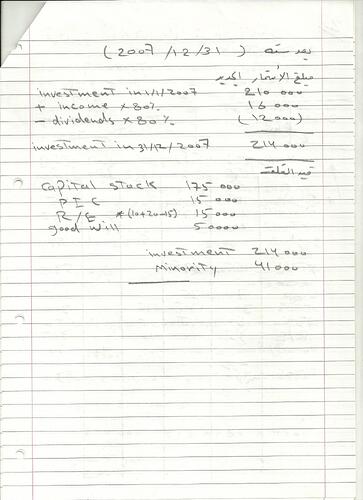 بعد سنه ( 31/ 12/ 2007 )
مبلغ الإستثمار الجديد
investment in 1/1/2007 210 000
+ income x 80% 16 000
- dividends x 80% (12 000)
investment in 31/12/2007 214 000
قيد
capital stock 175 000
P I C 15 000
R/E *(10+20-15) 15 000
good will 50000
investment 214 000
Minority 41 000